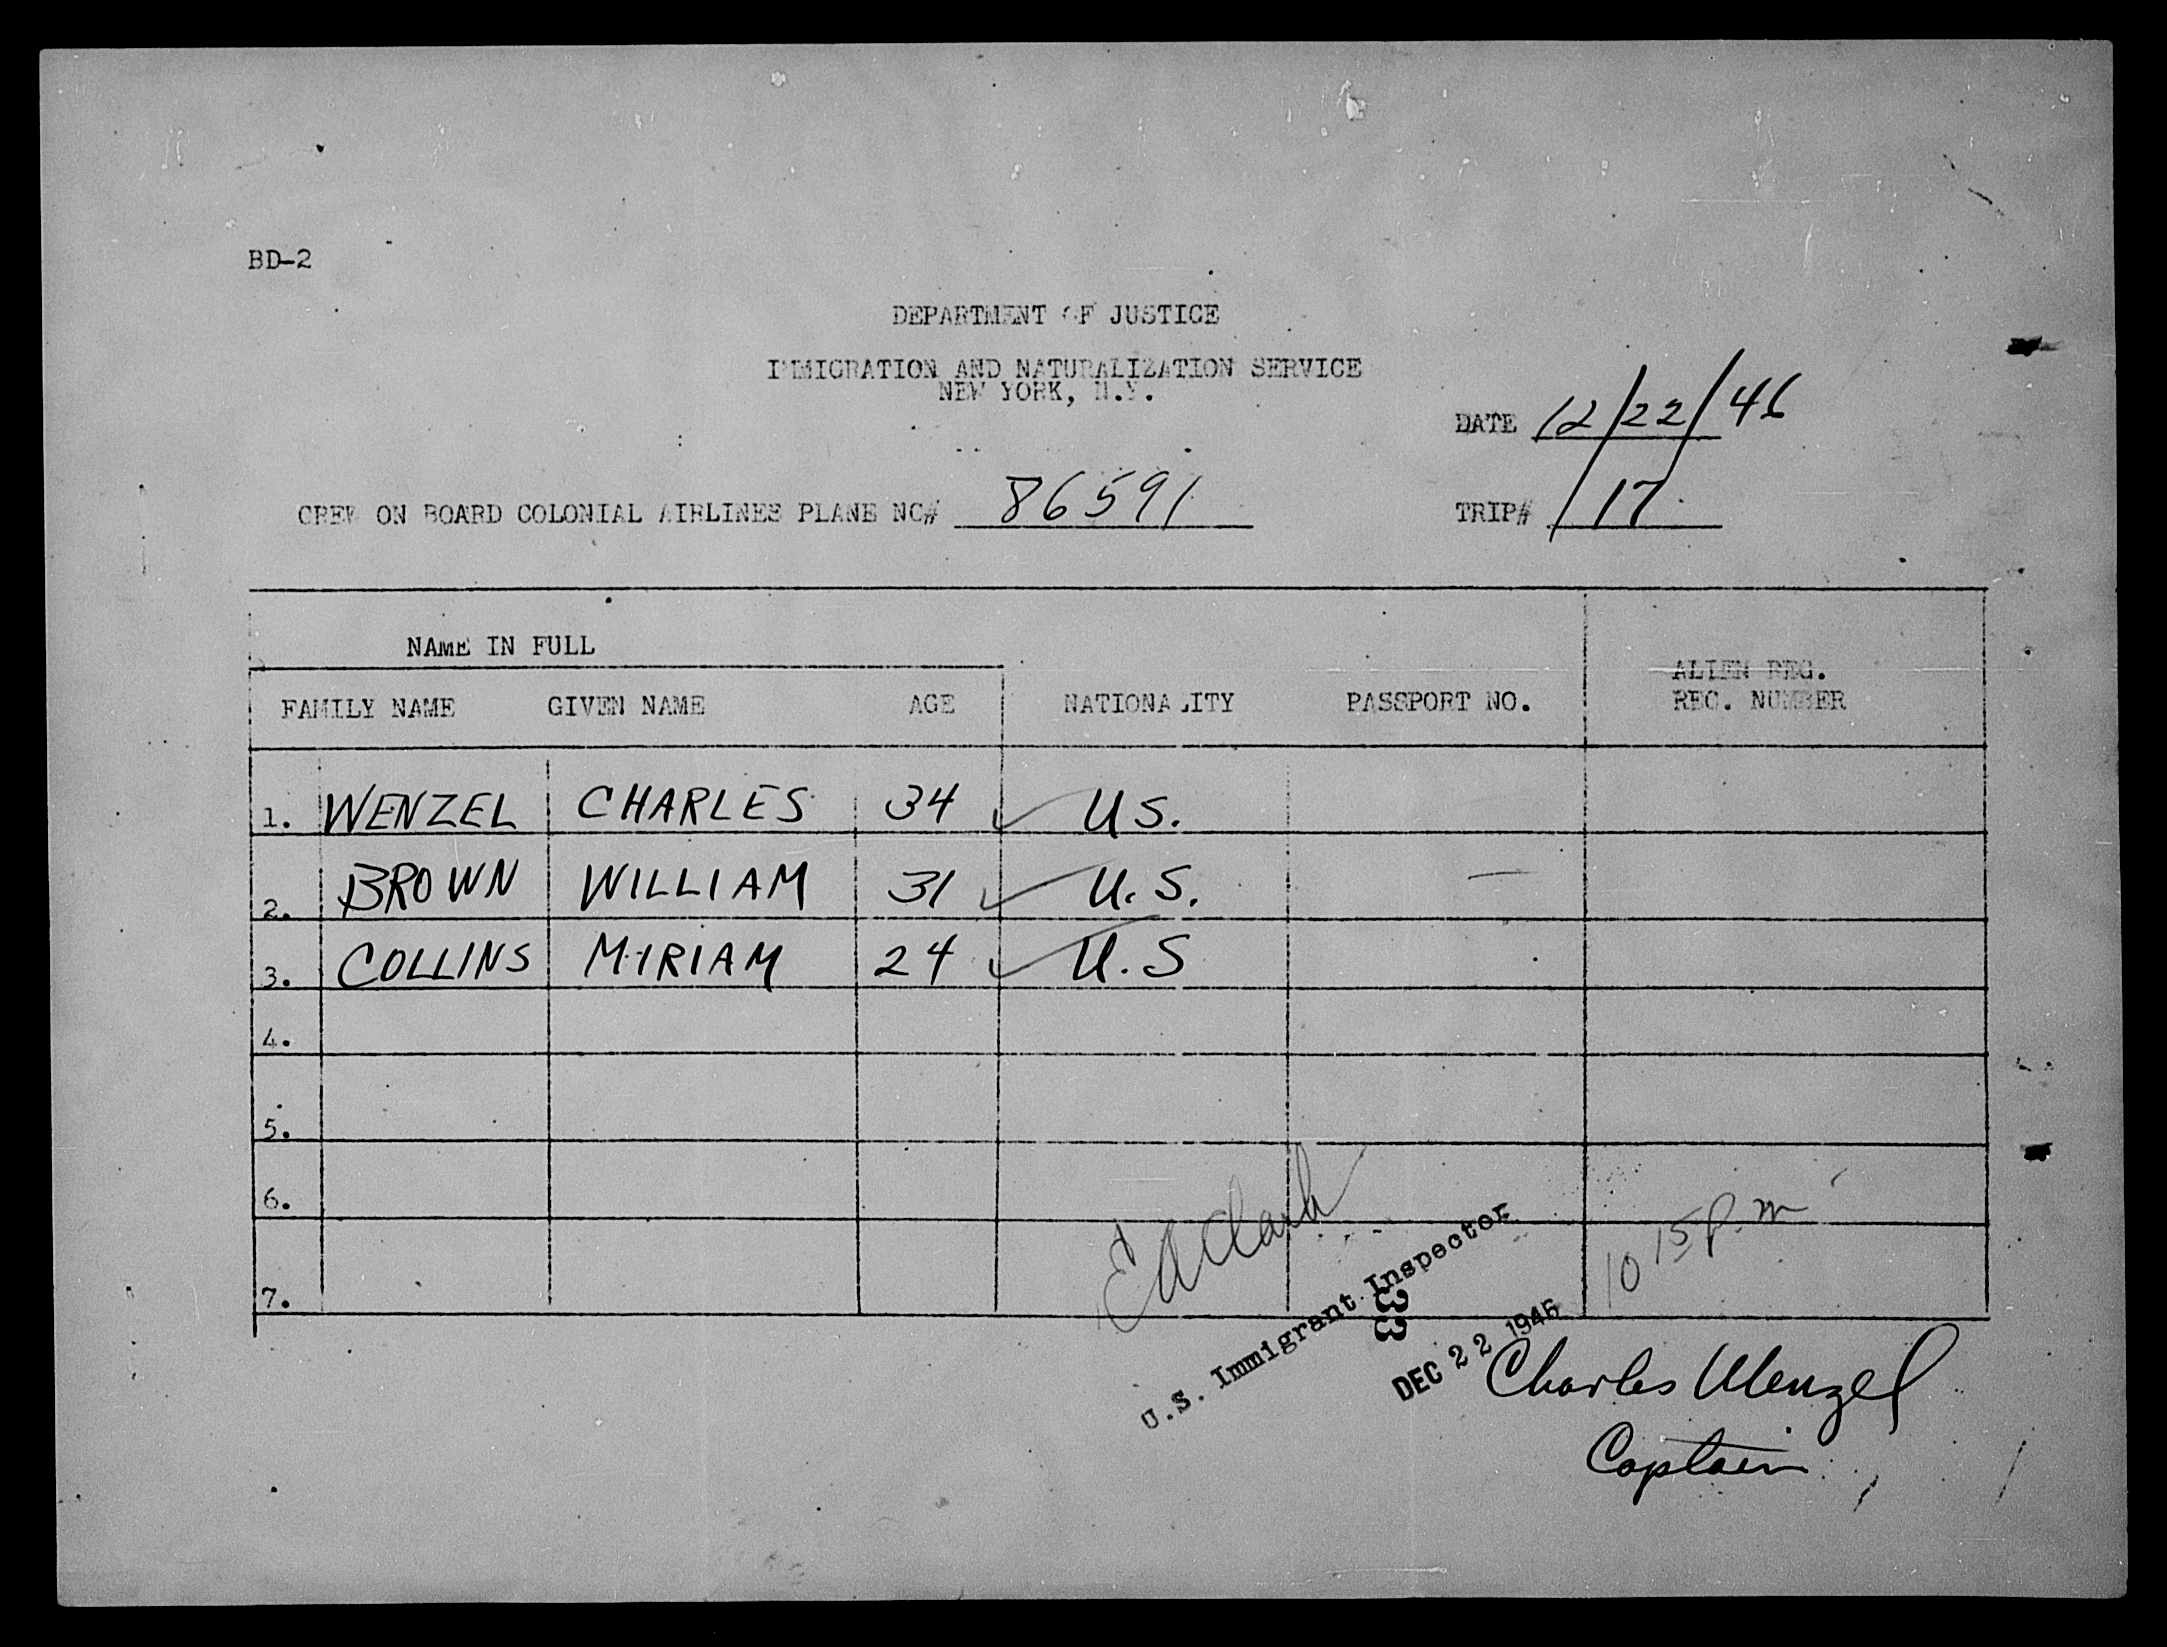 BD-2
DEPARTMENT OF JUSTICE
IMMIGRATION AND NATURALIZATION SERVICE
NEW YORK, N.Y.
DATE 12/22/46
CREW ON BOARD COLONIAL AIRLINES PLANE NC# 86591 TRIP# 17
NAME IN FULL
ALIEN REG.
FAMILY NAME GIVEN NAME AGE NATIONALITY PASSPORT NO. REG. NUMBER
1. WENZEL CHARLES 34 ✓ US.
2. BROWN WILLIAM 31 ✓ U.S. —
3. COLLINS MIRIAM 24 ✓ U.S
4.
5.
6.
7.
E A Clark
10 15 p.m
U.S. Immigrant Inspector
33
DEC 22 1946
Charles Wenzel
Captain